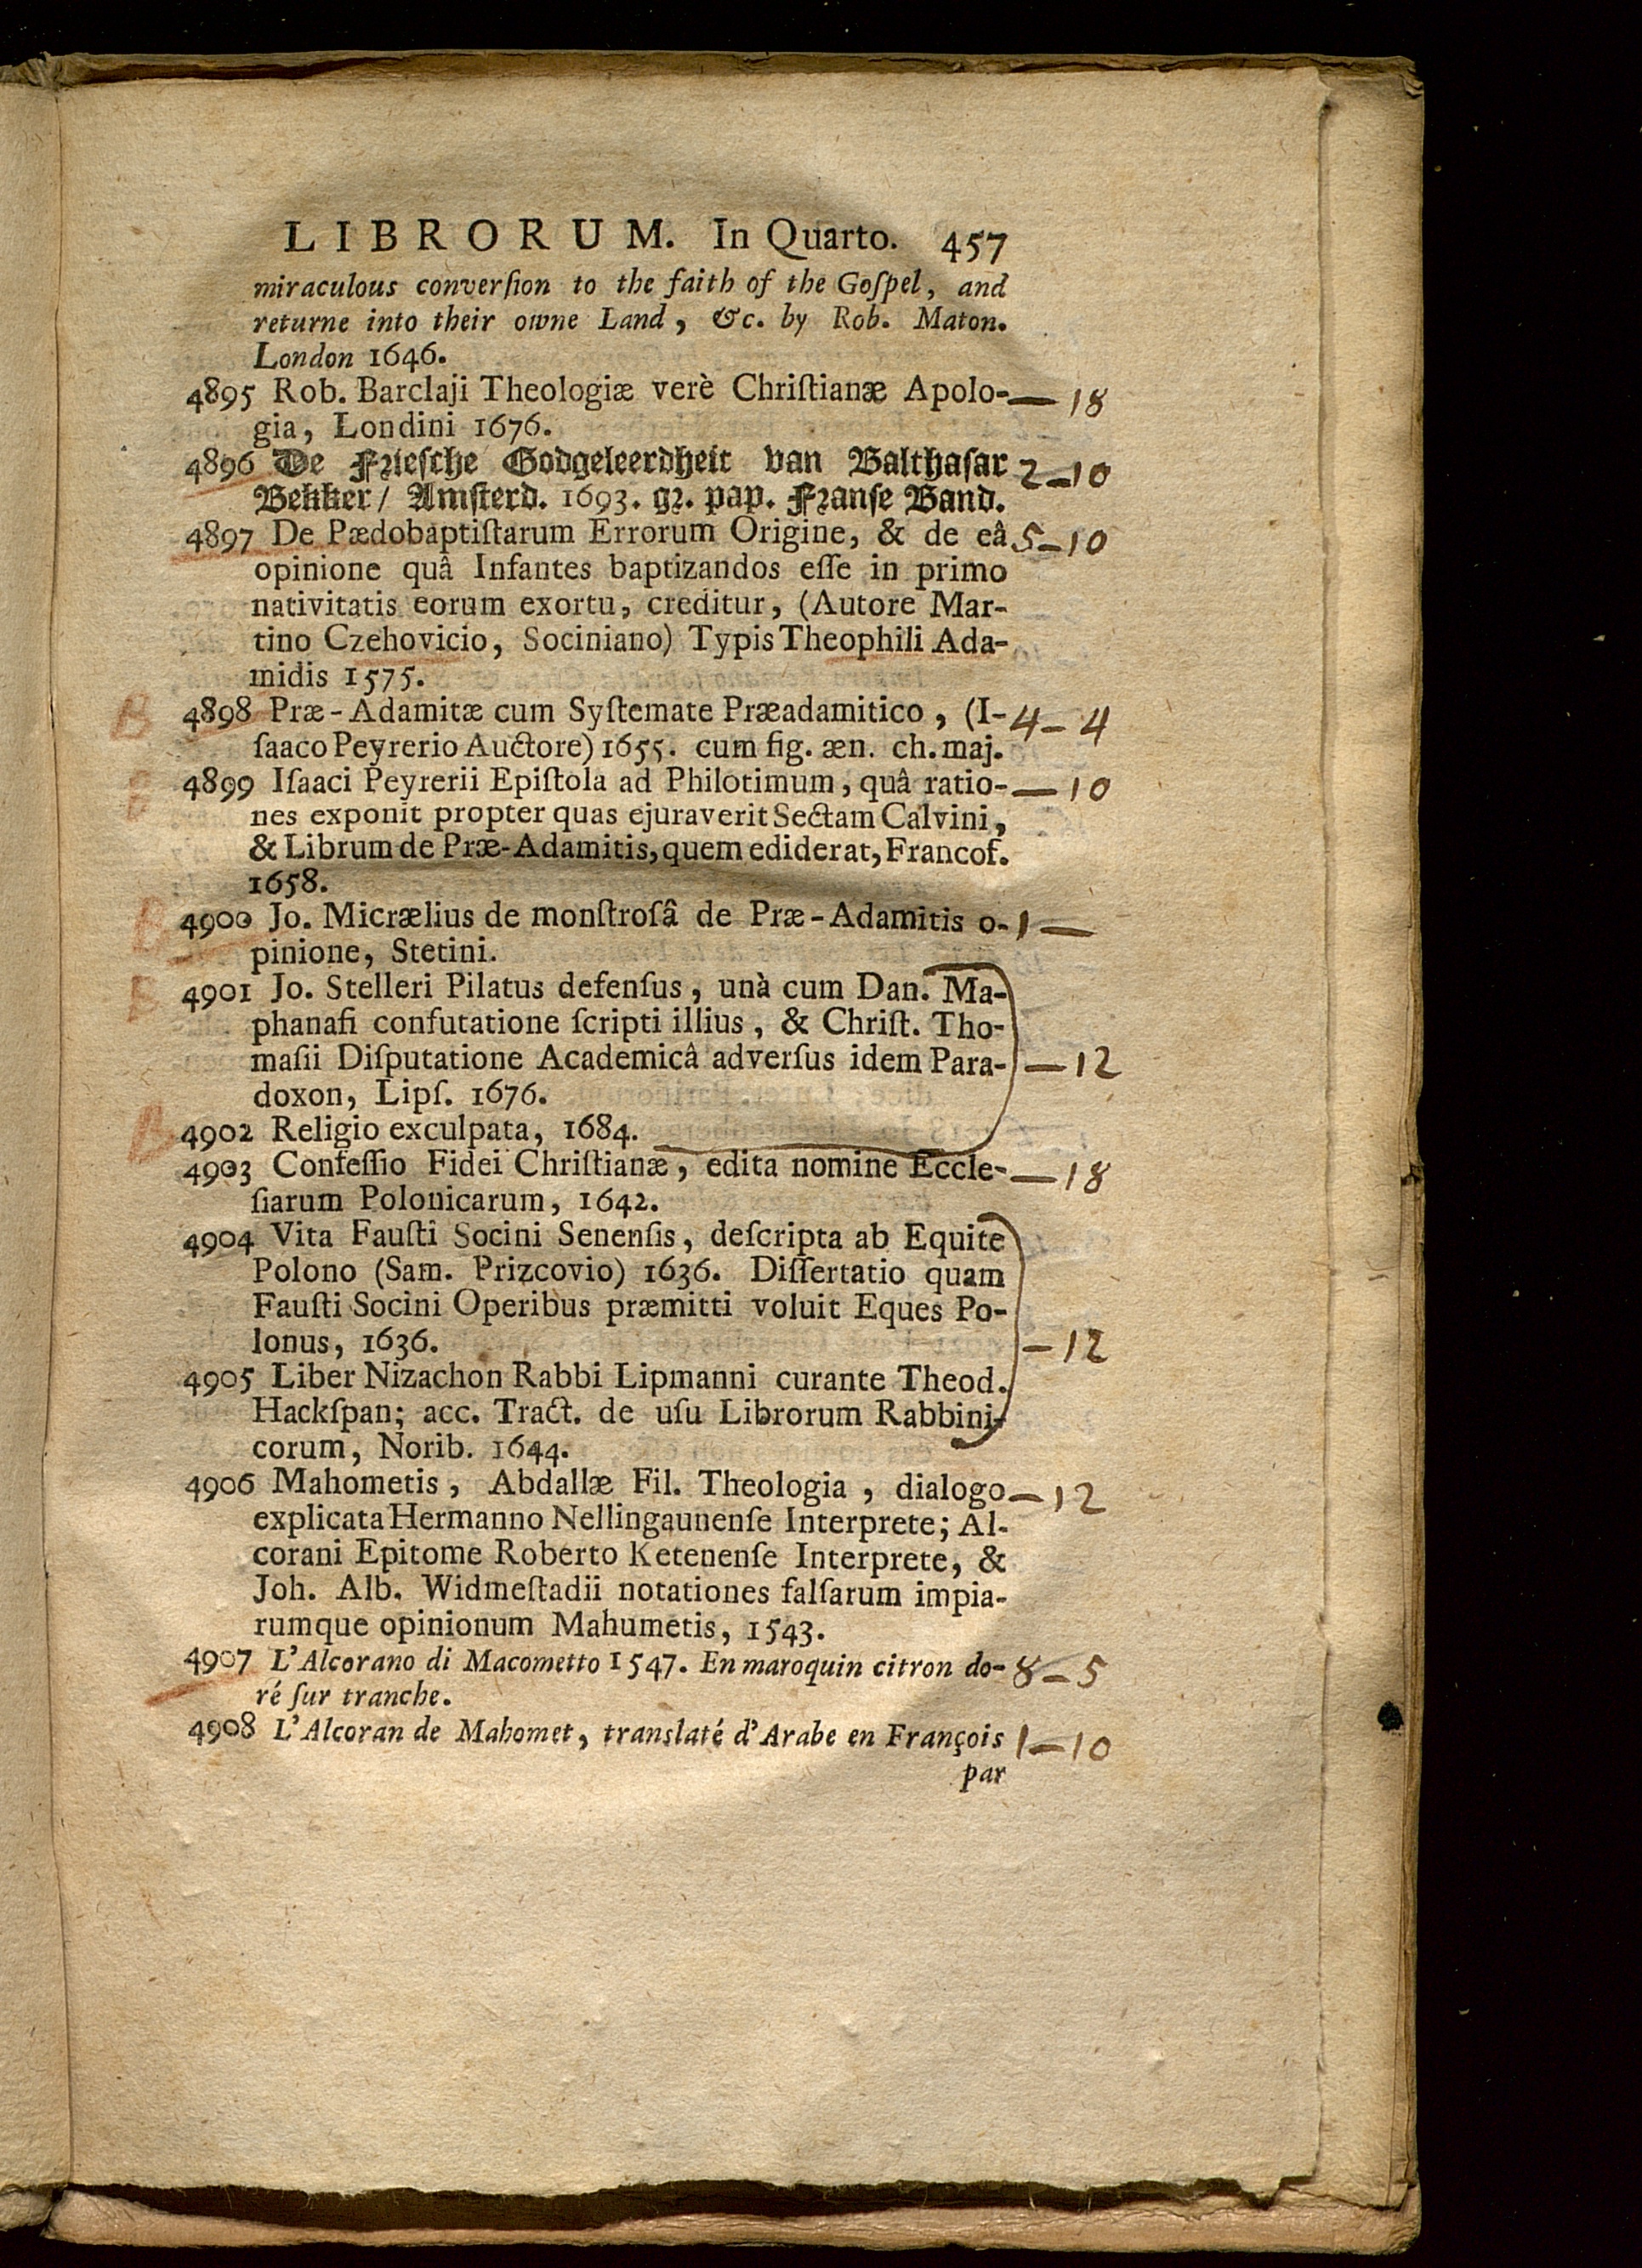 LIBRORUM. In Quarto. 457
miraculous converſion to the faith of the Goſpel, and
returne into their owne Land, &c. by Rob. Maton.
London 1646.
4895 Rob. Barclaji Theologiæ verè Chriſtianæ Apolo- — 18
gia, Londini 1676.
4896 De Frieſche Godgeleerdheit van Balthaſar 2 — 10
Bekker / Amſterd. 1693. gr. pap. Franſe Band.
4897 De Pædobaptiſtarum Errorum Origine, & de eâ 5 — 10
opinione quâ Infantes baptizandos eſſe in primo
nativitatis eorum exortu, creditur, (Autore Mar-
tino Czehovicio, Sociniano) Typis Theophili Ada-
midis 1575.
B 4898 Præ-Adamitæ cum Syſtemate Præadamitico, (I- 4 — 4
ſaaco Peyrerio Auctore) 1655. cum fig. æn. ch. maj.
B 4899 Iſaaci Peyrerii Epiſtola ad Philotimum, quâ ratio- — 10
nes exponit propter quas ejuraverit Sectam Calvini,
& Librum de Præ-Adamitis, quem ediderat, Francof.
1658.
B 4900 Jo. Micrælius de monſtroſâ de Præ-Adamitis o- 1 —
pinione, Stetini.
B 4901 Jo. Stelleri Pilatus defenſus, unà cum Dan. Ma-
phanafi confutatione ſcripti illius, & Chriſt. Tho-
maſii Diſputatione Academicâ adverſus idem Para- — 12
doxon, Lipſ. 1676.
B 4902 Religio exculpata, 1684.
4903 Confeſſio Fidei Chriſtianæ, edita nomine Eccle- — 18
ſiarum Polonicarum, 1642.
4904 Vita Fauſti Socini Senenſis, deſcripta ab Equite
Polono (Sam. Prizcovio) 1636. Diſſertatio quam
Fauſti Socini Operibus præmitti voluit Eques Po-
lonus, 1636. — 12
4905 Liber Nizachon Rabbi Lipmanni curante Theod.
Hackſpan; acc. Tract. de uſu Librorum Rabbini-
corum, Norib. 1644.
4906 Mahometis, Abdallæ Fil. Theologia, dialogo — 12
explicata Hermanno Nellingaunenſe Interprete; Al-
corani Epitome Roberto Ketenenſe Interprete, &
Joh. Alb. Widmeſtadii notationes falſarum impia-
rumque opinionum Mahumetis, 1543.
4907 L'Alcorano di Macometto 1547. En maroquin citron do- 8 — 5
ré ſur tranche.
4908 L'Alcoran de Mahomet, translaté d'Arabe en François 1 — 10
par